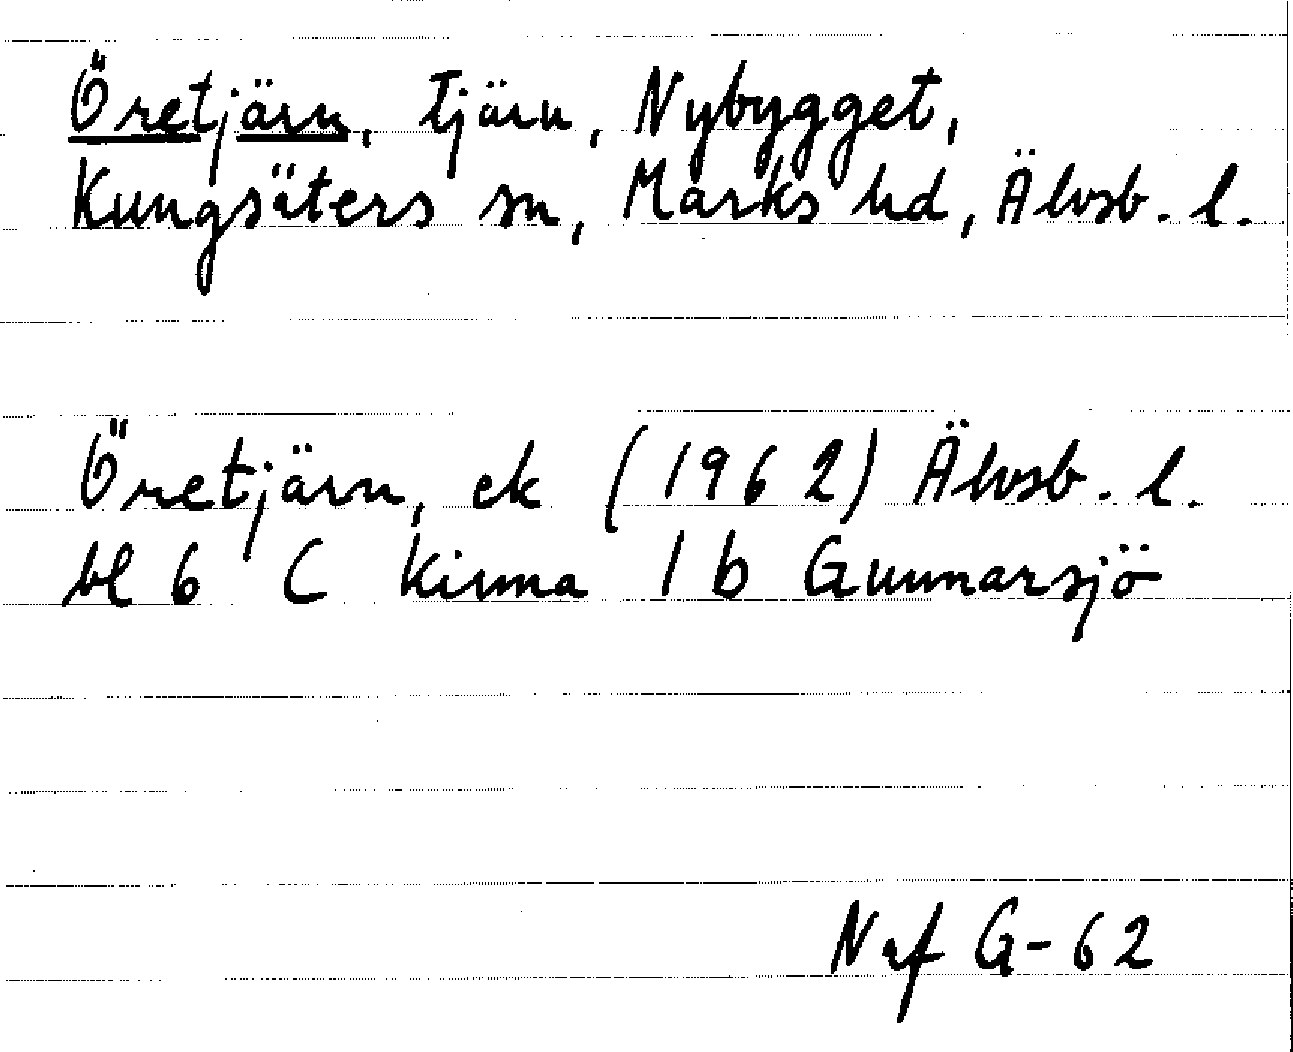 Öretjärn, tjärn, Nybygget,
Kungsäters sn, Marks hd, Älvsb. l.
Öretjärn, ek (1962) Älvsb. l.
bl 6 C Kinna 1 b Gunnarsjö
Nrf G-62